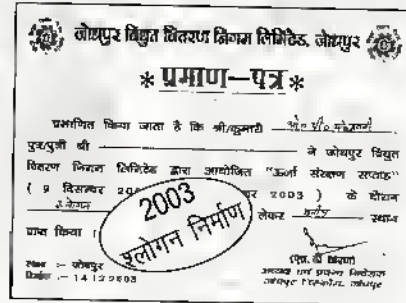 जोधपुर विद्युत वितरण निगम लिमिटेड, जोधपुर
* प्रमाण—पत्र *
प्रमाणित किया जाता है कि श्री/कुमारी
पुत्र/पुत्री श्री ने जोधपुर विद्युत
वितरण निगम लिमिटेड द्वारा आयोजित "ऊर्जा संरक्षण सप्ताह"
( 9 दिसम्बर 2003 ) के दौरान
लेकर स्थान
प्राप्त किया ।
2003
श्लोगन निर्माण
स्थान :– जोधपुर
दिनांक :– 14.12.2003
अध्यक्ष एवं प्रबन्ध निदेशक